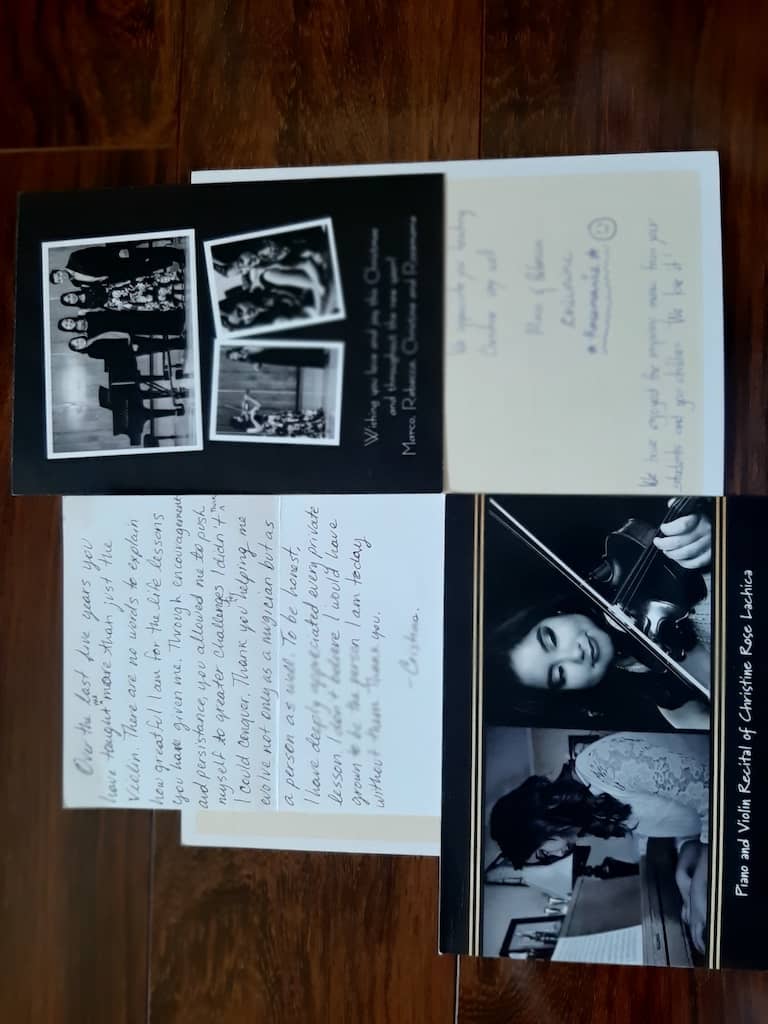 Over the last five years you
have taught me more than just the
violin. There are no words to explain
how greatful I am for the life lessons
you have given me. Through encouragement
and persistance, you allowed me to push
myself to greater challenges I didn't think
I could conquer. Thank you helping me
evolve not only as a musician but as
a person as well. To be honest,
I have deeply appreciated every private
lesson. I don't believe I would have
grown to be the person I am today
without them. Thank you.
- Cristina.
Wishing you love and joy this Christmas
and throughout the new year!
Marco, Rebecca, Christine and Rosemarie
We appreciate your teaching
Christine very well
Marco & Rebecca
Christine
*Rosemarie*
We have enjoyed the inspiring music from your
students and your children. We love it!
Piano and Violin Recital of Christine Rose Lachica